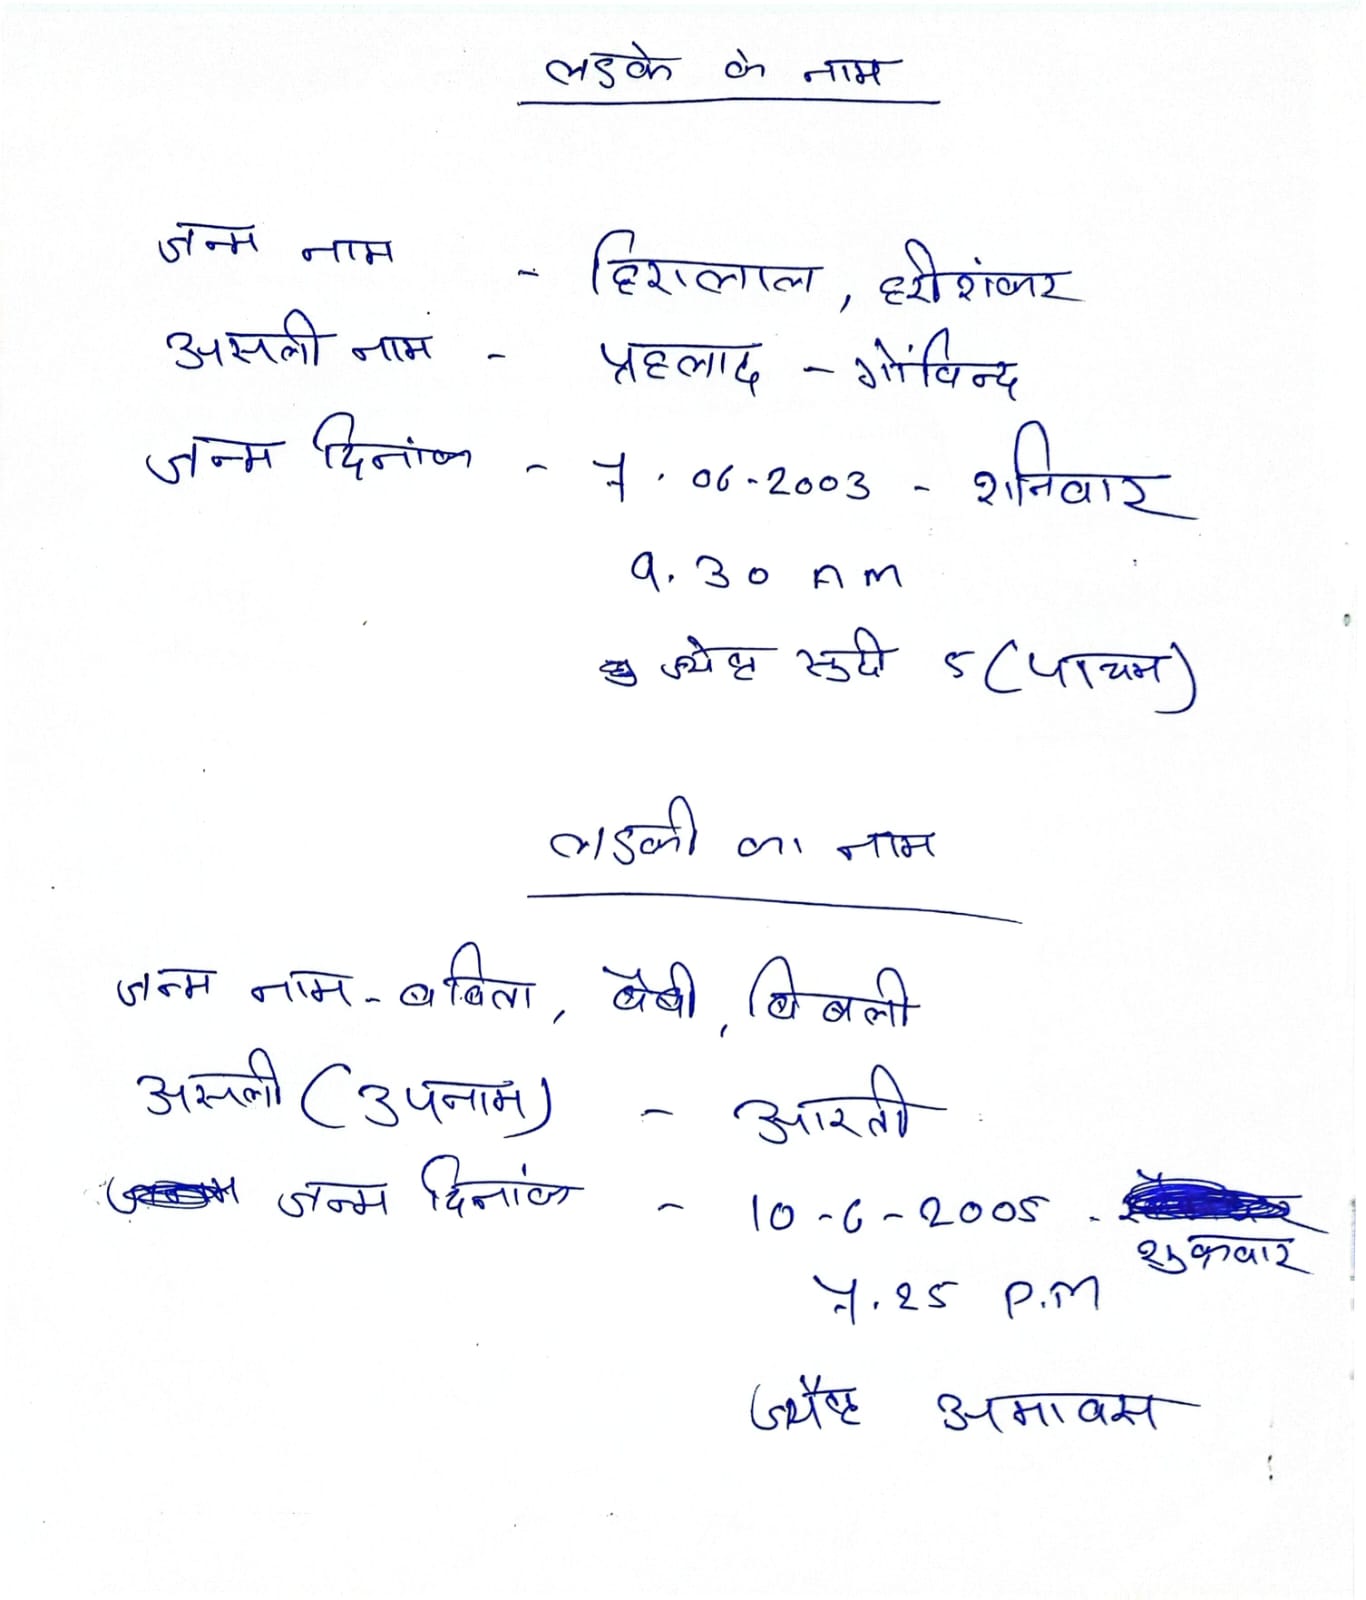 लडके के नाम
जन्म नाम - हिरालाल, हरीशंकर
असली नाम - प्रहलाद - गोंविन्द
जन्म दिनांक - 7.06-2003 - शनिवार
9.30 AM
ज्येष्ठ सुदी 5 (पाचम)
लडकी का नाम
जन्म नाम - बबिता, बैबी, बिबली
असली (उपनाम) - आरती
जन्म दिनांक - 10-6-2005 -
शुक्रवार
7.25 P.M
ज्यैष्ठ अमावस